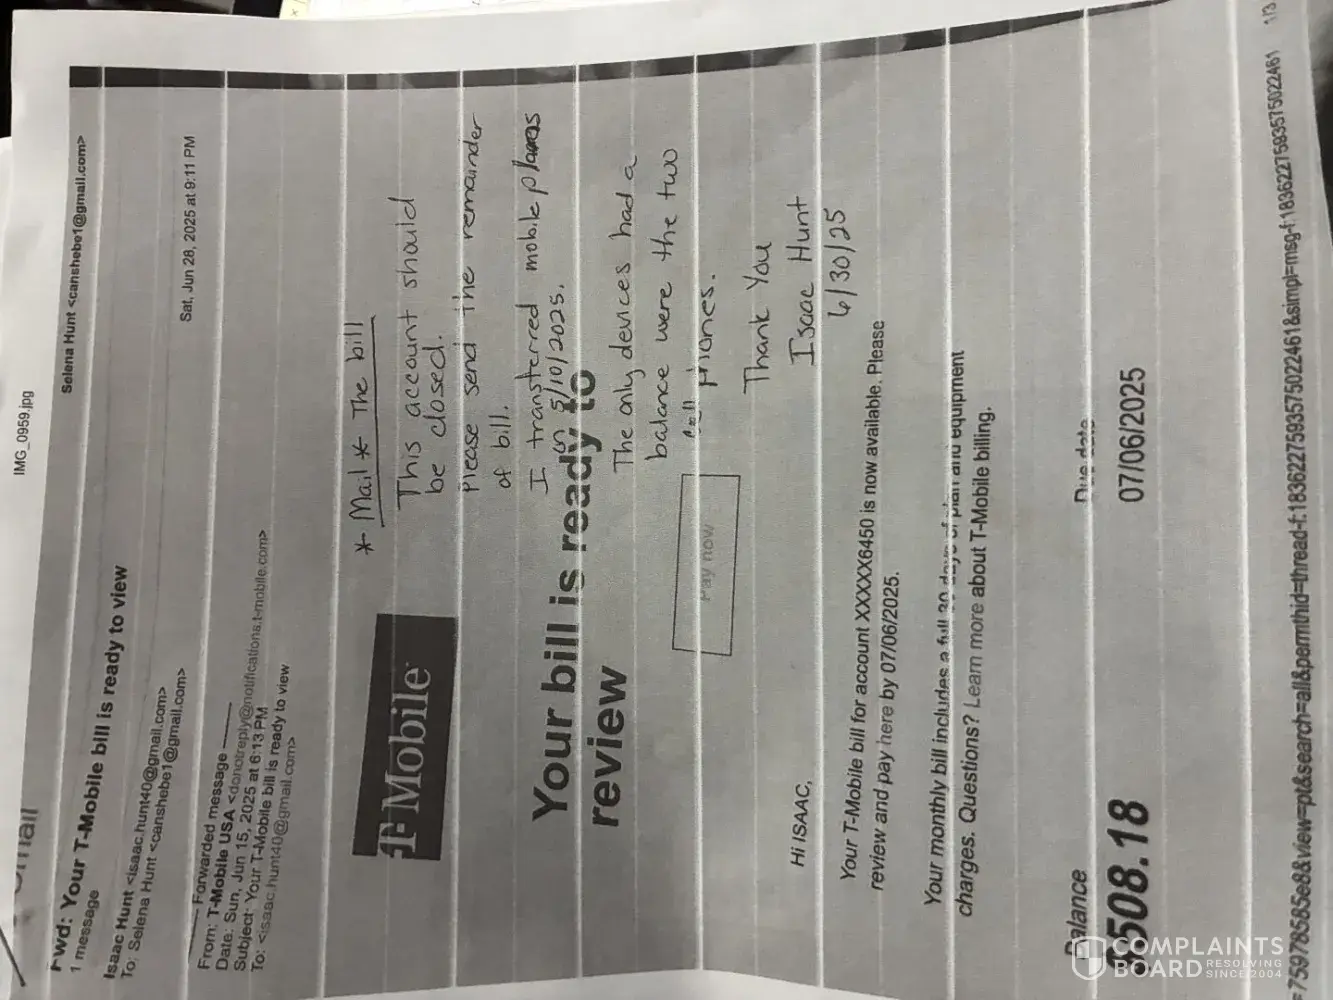 IMG_0959.jpg
Selena Hunt <canshebe1@gmail.com>
Fwd: Your T-Mobile bill is ready to view
1 message
Isaac Hunt <isaac.hunt40@gmail.com>
To: Selena Hunt <canshebe1@gmail.com>
Sat, Jun 28, 2025 at 9:11 PM
Forwarded message
From: T-Mobile USA <donotreply@notifications.t-mobile.com>
Date: Sun, Jun 15, 2025 at 6:13 PM
Subject: Your T-Mobile bill is ready to view
To: <isaac.hunt40@gmail.com>
* Mail * The bill
This account should
be closed.
Please send the remainder
of bill.
I transferred mobile plans
on 5/10/2025.
The only devices had a
balance were the two
cell phones.
Thank You
Isaac Hunt
6/30/25
T-Mobile
Your bill is ready to
review
Pay now
Hi ISAAC,
Your T-Mobile bill for account XXXXX6450 is now available. Please
review and pay here by 07/06/2025.
Your monthly bill includes a full 30 days of plan and equipment
charges. Questions? Learn more about T-Mobile billing.
Balance
$508.18
Due date
07/06/2025
=75978585e8&view=pt&search=all&permthid=thread-f:1836227593575022461&simpl=msg-f:1836227593575022461
1/3
COMPLAINTS
BOARD RESOLVING
SINCE 2004